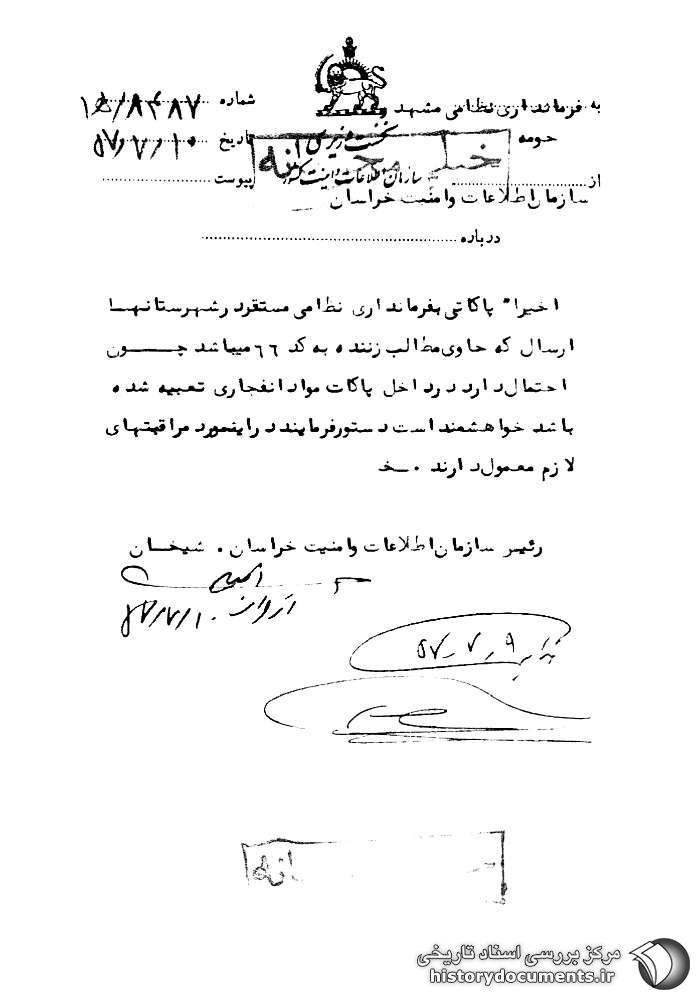 به فرمانداری نظامی مشهد و حومه
شماره
نخست وزیری
تاریخ ۵۷/۷/۱۰
خیلی محرمانه
سازمان اطلاعات و امنیت کشور
از سازمان اطلاعات و امنیت خراسان
پیوست
درباره
اخیراً پاکاتی بفرمانداری نظامی مستقر در شهرستانها
ارسال که حاوی مطالب زننده به کد ۶۶ میباشد چون
احتمال دارد در داخل پاکات مواد انفجاری تعبیه شده
باشد خواهشمند است دستور فرمایند در اینمورد مراقبتهای
لازم معمول دارند . خ
رئیس سازمان اطلاعات و امنیت خراسان . شیخان
۵۷/۷/۱۰
۵۷٫۷٫۹
مرکز بررسی اسناد تاریخی
historydocuments.ir